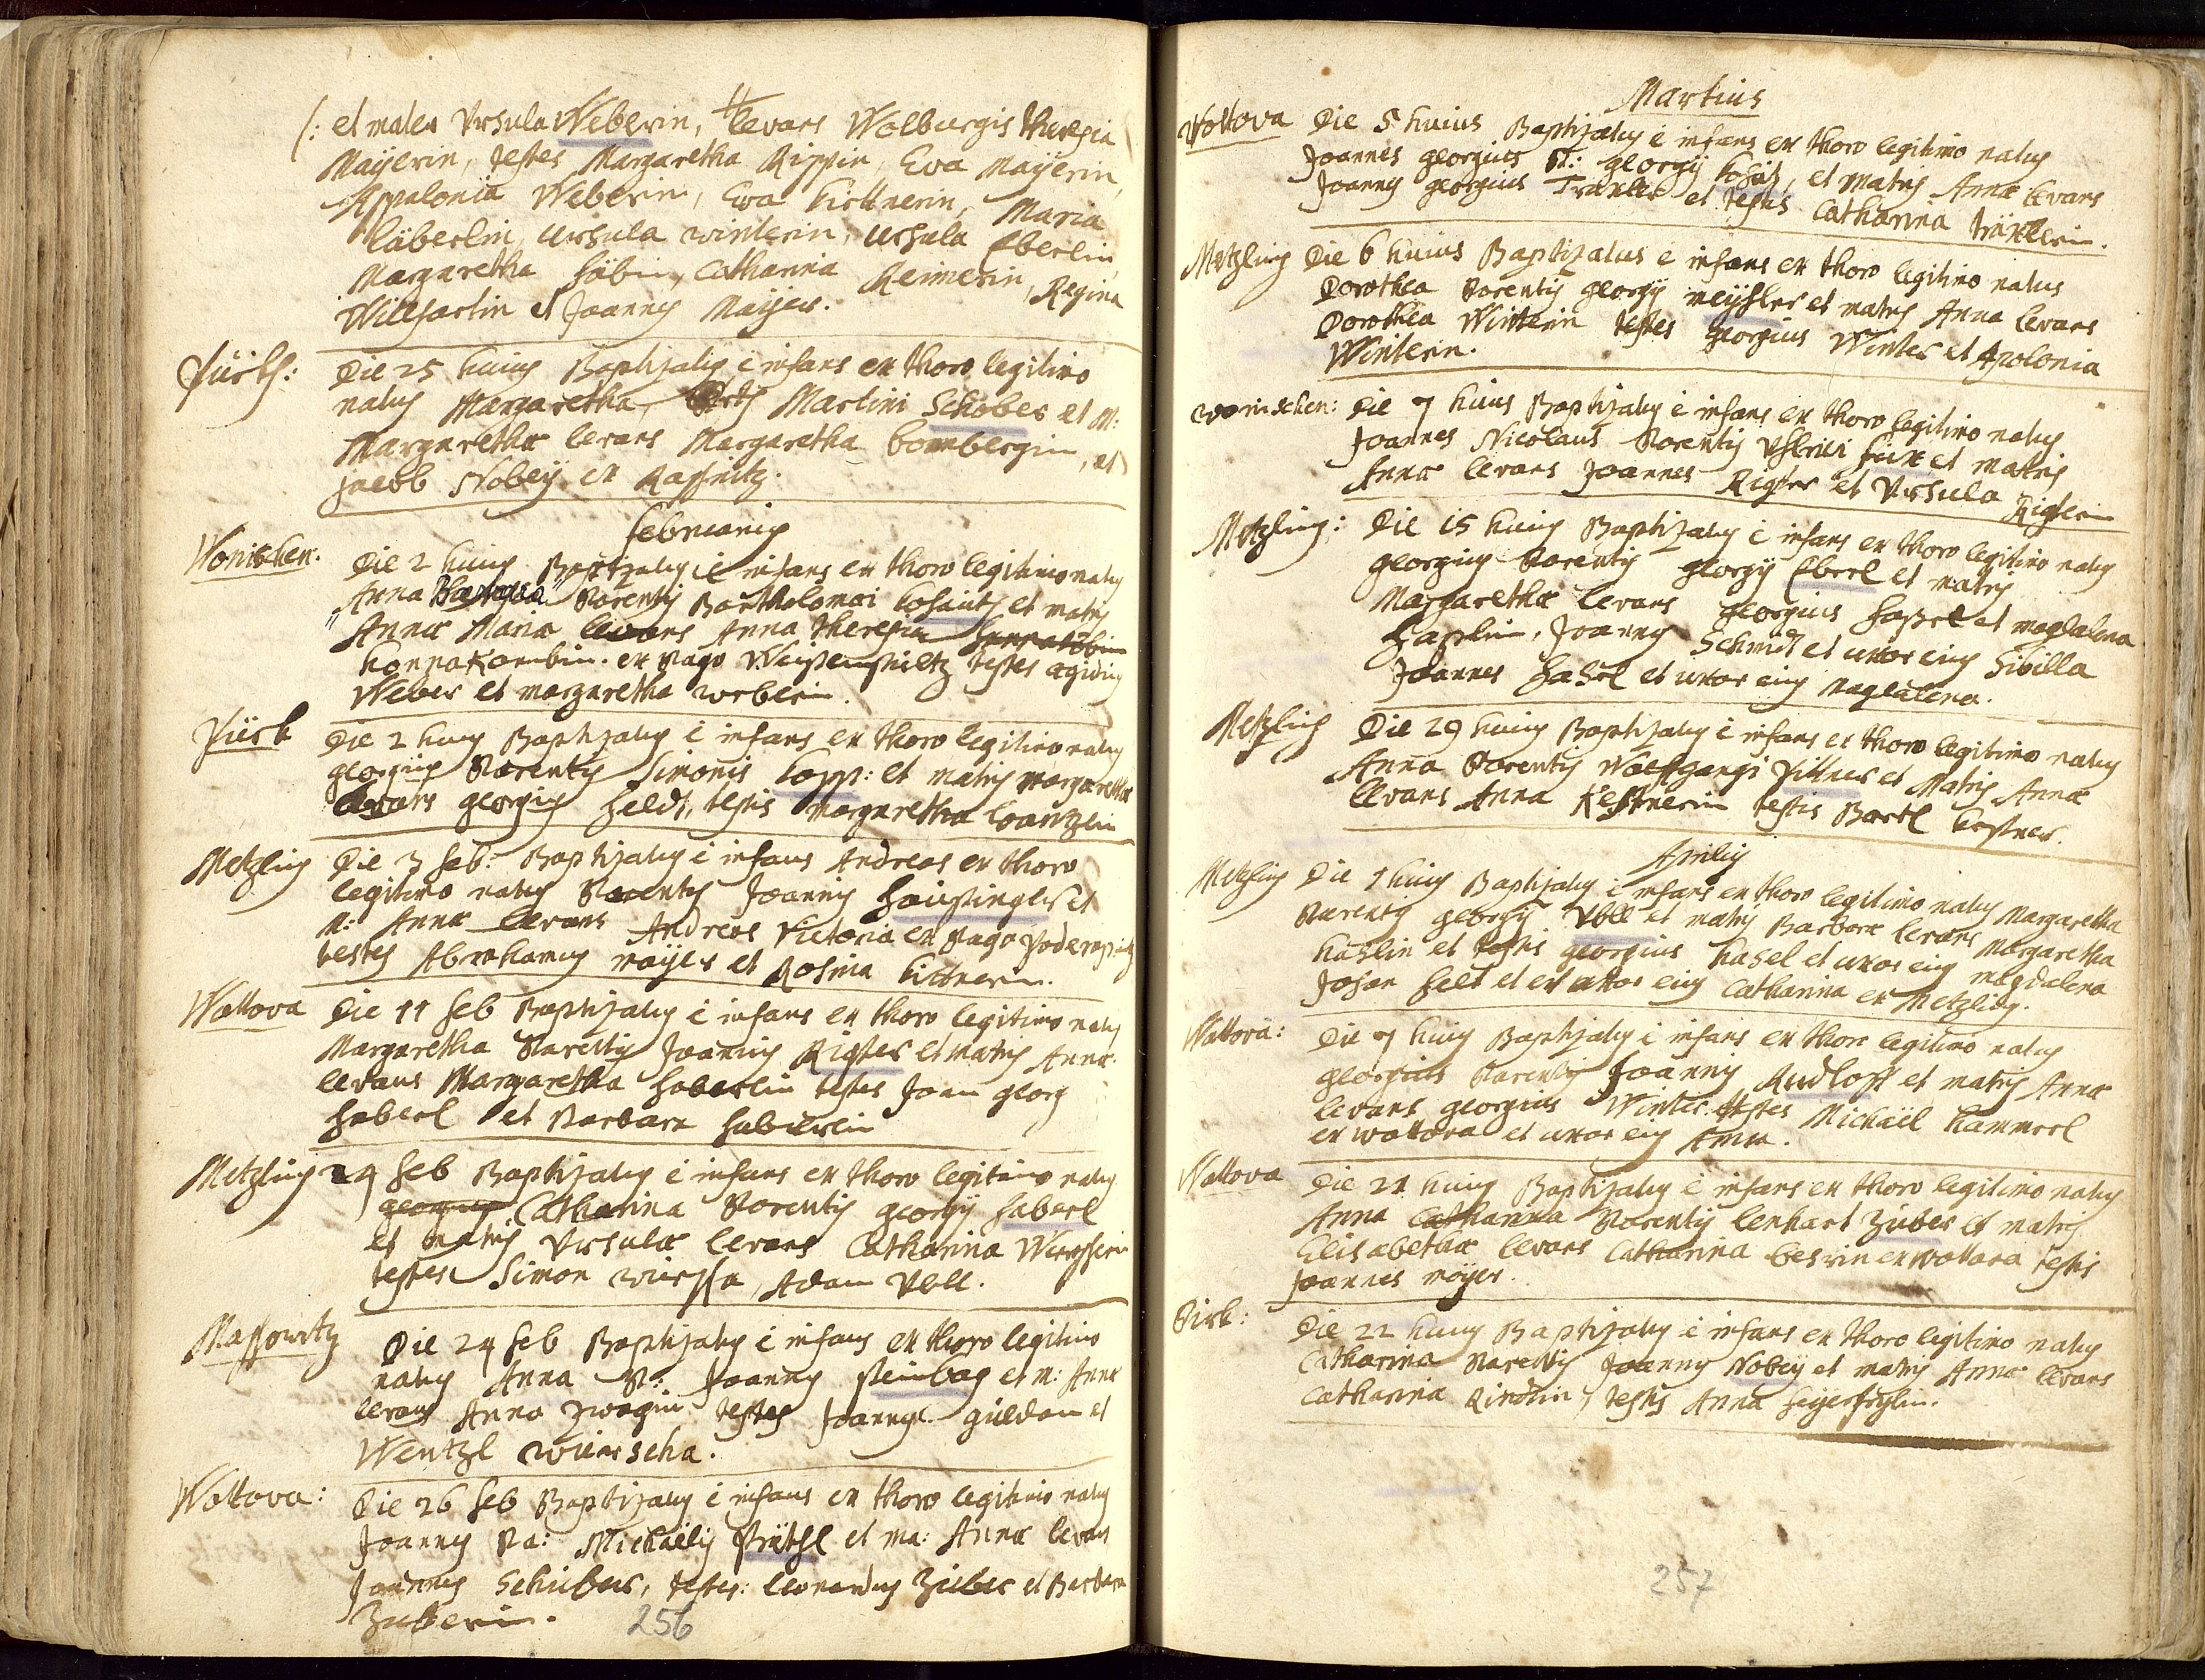 (: et mater Vrsula Weberin, levans Walburgis Theresia
Maÿerin, testes Margaretha Rippin, Eva Maÿerin,
Appalonia Weberin, Eva Kittnerin, Maria
läberlin, Ursula winterin, Ursula Eberlin,
Margaretha Catharina Reimerin, Regina
et Joannes Maÿer.
Die 25 huius Baptizatus ē infans ex thoro legitimo
natus Margaretha, Martini Schober et M:
Margarethæ levans Margaretha bombergin, et
Jacob Nobeÿ ex Rassnitz.
Februarius
Wonischen. Die 2 huius Baptizatus ē infans ex thoro legitimo natus
Anna Parentis Bartholomæi et matris
Annæ Mariæ levans Anna Theresia
ex Pago testes ægidius
Weber et margaretha weberin.
Die 2 huius Baptizatus ē infans ex thoro legitimo natus
georgius Parentis Simonis Kopp: et matris margarethæ
levans georgius Heldt, testis Margaretha
Metzling Die 3 feb: Baptizatus ē infans Andreas ex thoro
legitimo natus Parentis Joannis et
M: Annæ levans Andreas Victoria ex Pago
testes Abrahamus maÿer et Rosina Kittnerin.
Wottova Die 11 feb Baptizatus ē infans ex thoro legitimo natus
Margaretha Parentis Joannis Rigler et matris Annæ
levans Margaretha Haberlin testes Joan georg
Haberl et Barbara Haberlin
Metzling 24 feb Baptizatus ē infans ex thoro legitimo natus
georgius Catharina Parentis georgÿ Haberl
et matris Vrsulæ levans Catharina
testes Simon Adam Vbll.
Massowitz Die 24 feb Baptizatus ē infans ex thoro legitimo
natus Anna P: Joannis steinbag et M: Annæ
levans Anna Zwagin testes Joannes güldan et
Wentzl
Wottova: Die 26 feb Baptizatus ē infans ex thoro legitimo natus
Joannes Pa: Michaëlis et ma: Annæ levans
Joannes Schuber, testes: leonardus Zuber et Barbara
Zuberin.
256
Martius
Wottova Die 5 huius Baptizatus ē infans ex thoro legitimo natus
Joannes georgius P: georgÿ et matris Annæ levans
Joannes georgius Traxler et testis Catharina träxlerin.
Metzling Die 6 huius Baptizatus ē infans ex thoro legitimo natus
Dorothea Parentis georgÿ et matris Anna levans
Dorothea Winterin testes georgius Winter et Apolonia
Winterin.
wonischen: Die 7 huius Baptizatus ē infans ex thoro legitimo natus
Joannes Nicolaus Parentis et matris
Annæ levans Joannes Rigler et Vrsula Riglerin
Metzling: Die 15 huius Baptizatus ē infans ex thoro legitimo natus
georgius Parentis georgÿ Eberl et matris
Margarethæ levans georgius et magdalena
Joannes Schmidt et uxor eius Sibilla
Joannes Hasel et uxor eius Magdalena.
Metzling Die 29 huius Baptizatus ē infans ex thoro legitimo natus
Anna Parentis Wolfgangi et Matris Annæ
levans Anna Kestnerin testis Bartl kestner.
Aprilis
Metzling Die 1 huius Baptizatus ē infans ex thoro legitimo natus Margaretha
Parentis georgÿ Vbll et matris Barbaræ levans Margaretha
haslin et testis georgius hasel et uxor eius magdalena
Johan Helt et et uxor eius Catharina ex Metzling.
Wottova: Die 7 huius Baptizatus ē infans ex thoro legitimo natus
georgius Parentis Joannis Rudloff et matris Annæ
levans georgius Winter testes Michaël hammerl
ex wottova et uxor eius Anna.
Wottova Die 21 huius Baptizatus ē infans ex thoro legitimo natus
Anna Catharina Parentis lenhart Zuber et matris
Elisabethæ levans Catharina ex wottova testis
Joannes maÿer.
Die 22 huius Baptizatus ē infans ex thoro legitimo natus
Catharina Parentis Joannis Nobeÿ et matris Annæ levans
Catharina testis Anna
257